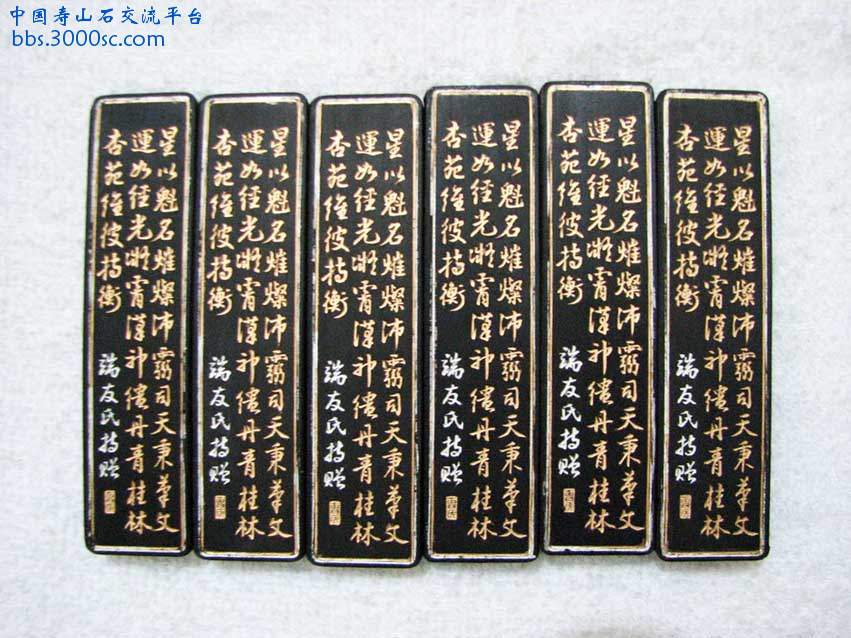 中国寿山石交流平台
bbs.3000sc.com
星以魁名熣燦沛司天秉筆文
運如經光凝霄漢神丹青桂林
杏苑維彼持衡
端友氏持贈
星以魁名熣燦沛司天秉筆文
運如經光凝霄漢神丹青桂林
杏苑維彼持衡
端友氏持贈
星以魁名熣燦沛司天秉筆文
運如經光凝霄漢神丹青桂林
杏苑維彼持衡
端友氏持贈
星以魁名熣燦沛司天秉筆文
運如經光凝霄漢神丹青桂林
杏苑維彼持衡
端友氏持贈
星以魁名熣燦沛司天秉筆文
運如經光凝霄漢神丹青桂林
杏苑維彼持衡
端友氏持贈
星以魁名熣燦沛司天秉筆文
運如經光凝霄漢神丹青桂林
杏苑維彼持衡
端友氏持贈